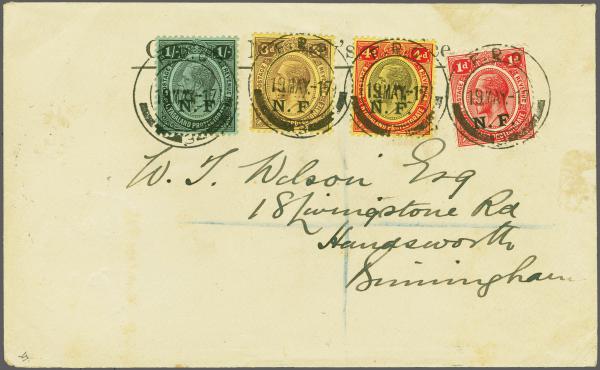 1/- 1/- 3d 4d 4d 1d 1d
19MAY-17 19MAY-17 19MAY-17 19MAY-17
N.F N.F N.F N.F
W. T. Wilson Esq
18 Livingstone Rd
Handsworth
Birmingham